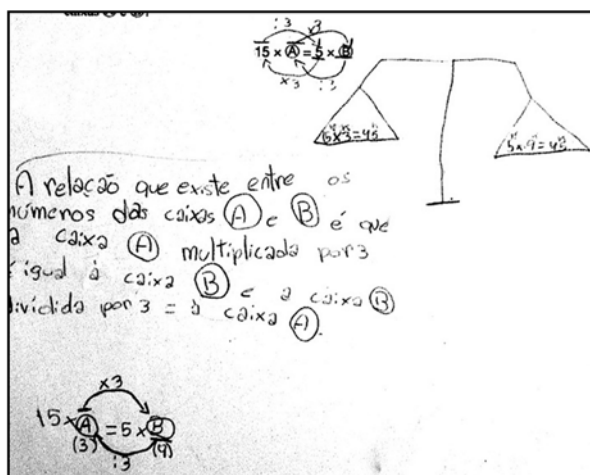 : 3 x3
15 x Ⓐ = 5 x Ⓑ
x3 : 3
15x3=45
5x9=45
A relação que existe entre os
números das caixas Ⓐ e Ⓑ é que
a caixa Ⓐ multiplicada por 3
é igual à caixa Ⓑ e a caixa Ⓑ
dividida por 3 = à caixa Ⓐ.
x3
15 x Ⓐ = 5 x Ⓑ
(3) (9)
:3